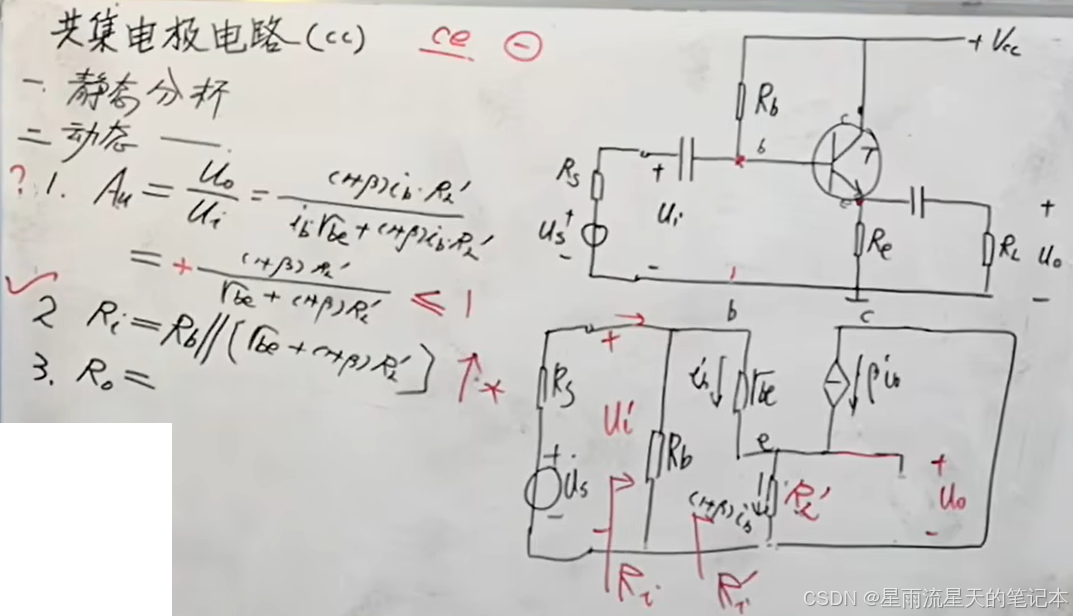 共集电极电路(cc) ce ⊖
一 静态分析
二 动态 ——
? 1. Au = Uo/Ui = (1+β)ib·RL' / ibrbe+(1+β)ib·RL'
= + (1+β)RL' / rbe+(1+β)RL' ≤ 1
✓
2 Ri = Rb//[rbe+(1+β)RL'] ↑*
3. Ro =
+Vcc
Rb
c
b
T
e
Rs
+ Ui -
Us + -
Re
RL
+ Uo -
b
c
Rs
+ Ui'
ib
rbe
βib
e
Rb
+ Us -
(1+β)ib
RL'
+ Uo -
Ri
Ri'
CSDN @星雨流星天的笔记本